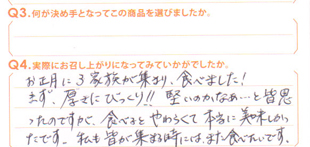 Q3.何が決め手となってこの商品を選びましたか。
Q4.実際にお召し上がりになってみていかがでしたか。
お正月に3家族が集まり、食べました！
まず、厚さにびっくり!! 堅いのかなぁ…と皆思
ったのですが、食べるとやわらくて本当に美味しかっ
たです。私も皆が集まる時には、また食べたいです。